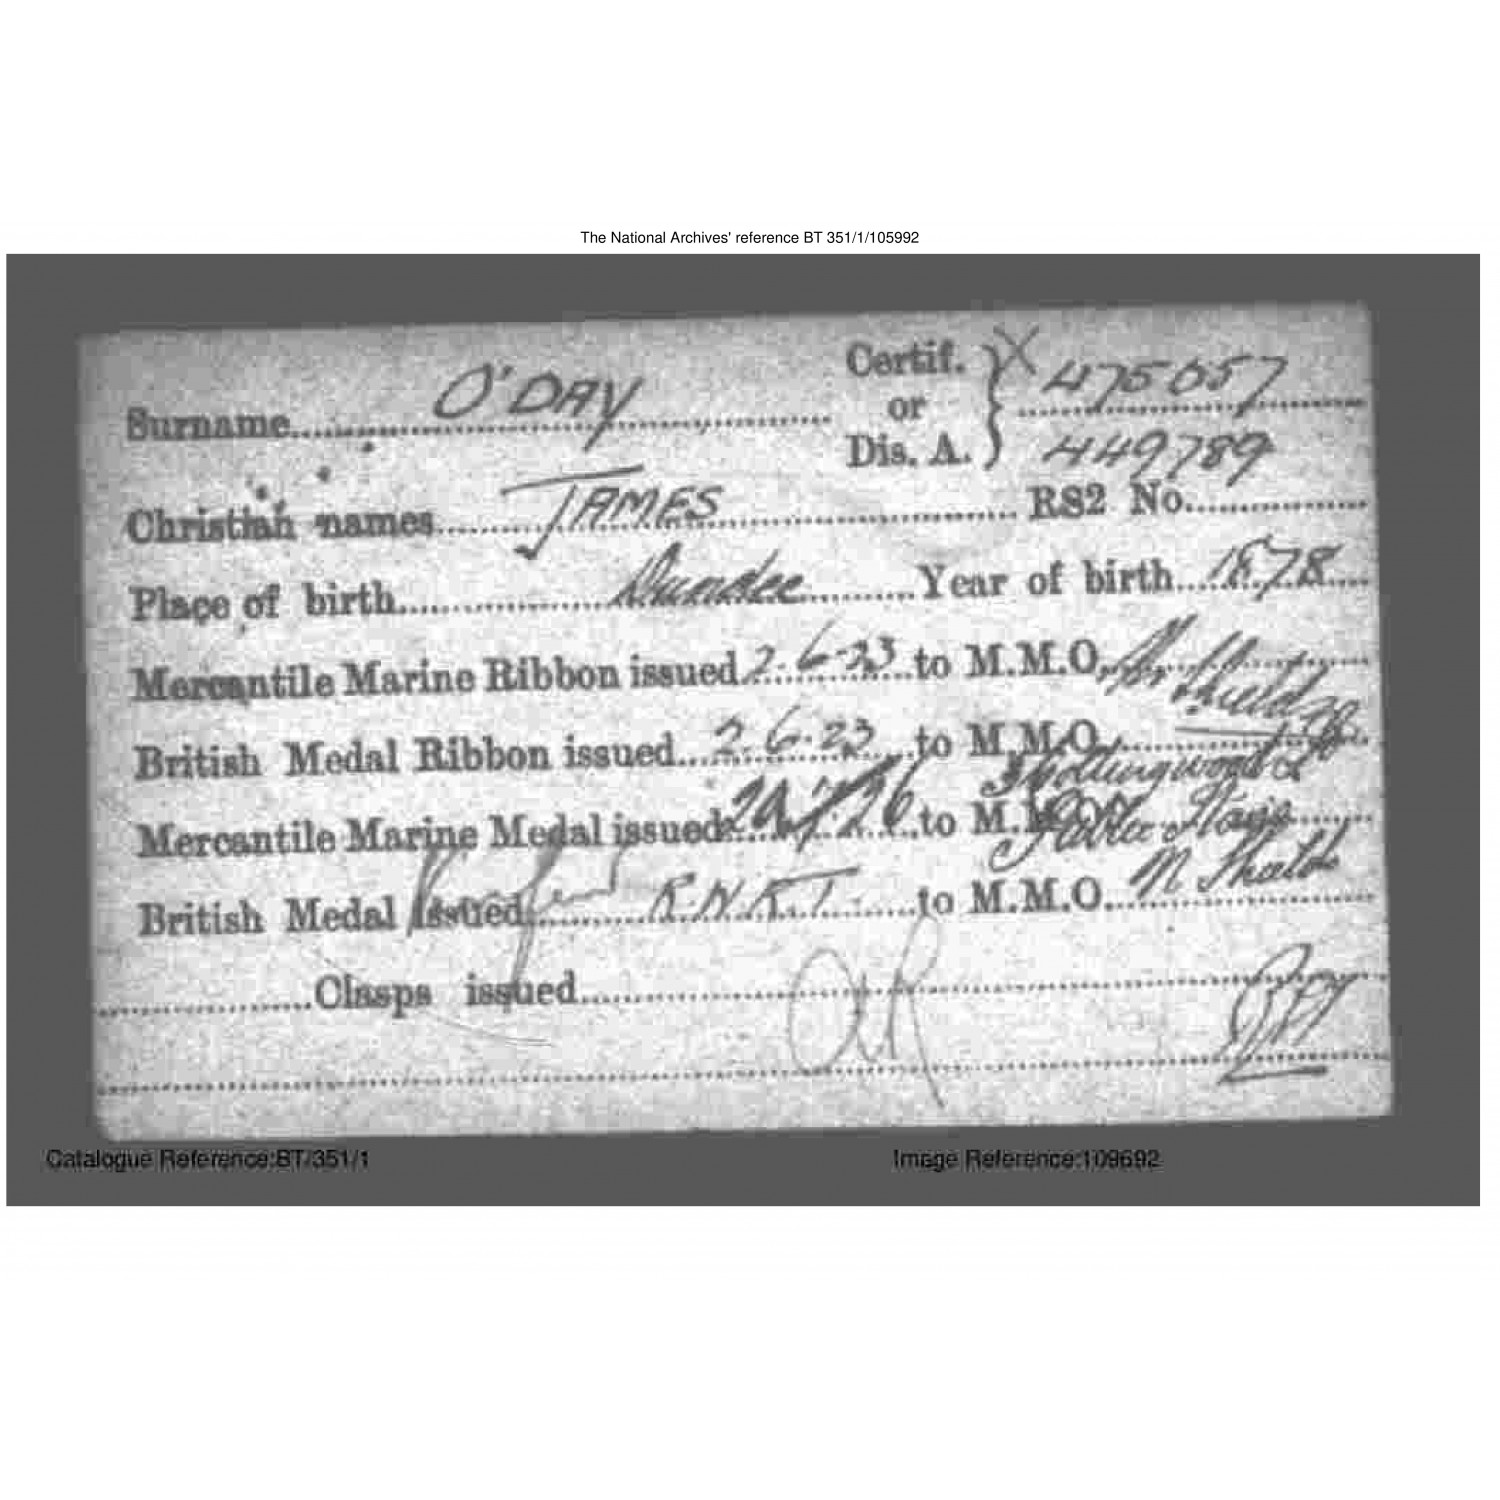 The National Archives' reference BT 351/1/105992
Surname O'DAY
Certif. or Dis. A. X 475057
449789
Christian names JAMES RS2 No.
Place of birth Dundee Year of birth 1878
Mercantile Marine Ribbon issued 2-6-23 to M.M.O. Nr Shields
British Medal Ribbon issued 2-6-23 to M.M.O.
Mercantile Marine Medal issued 20/7/26 to M.M.O. 3 Collingwood St
British Medal issued R.N.R.T. to M.M.O. N Shields
Clasps issued
Catalogue Reference:BT/351/1 Image Reference:109692